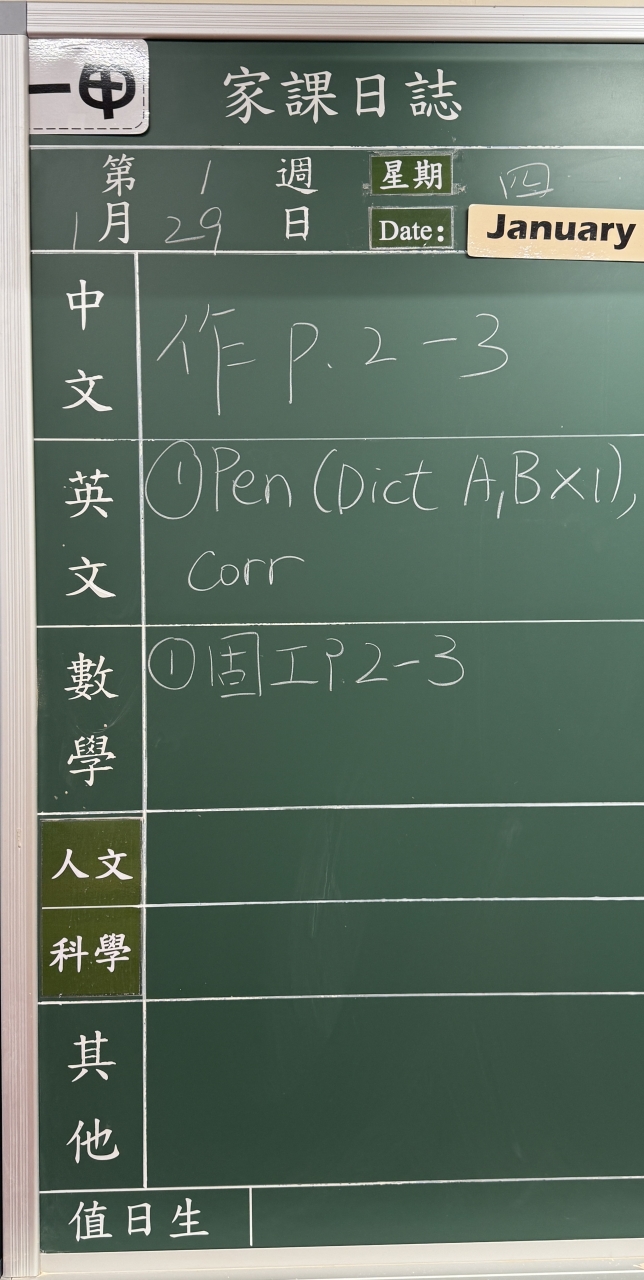 一甲
家課日誌
第 1 週 星期 四
1月 29 日 Date: January
中文 作 P. 2-3
英文 ①Pen (Dict A,B×1),
corr
數學 ①固工P.2-3
人文
科學
其他
值日生